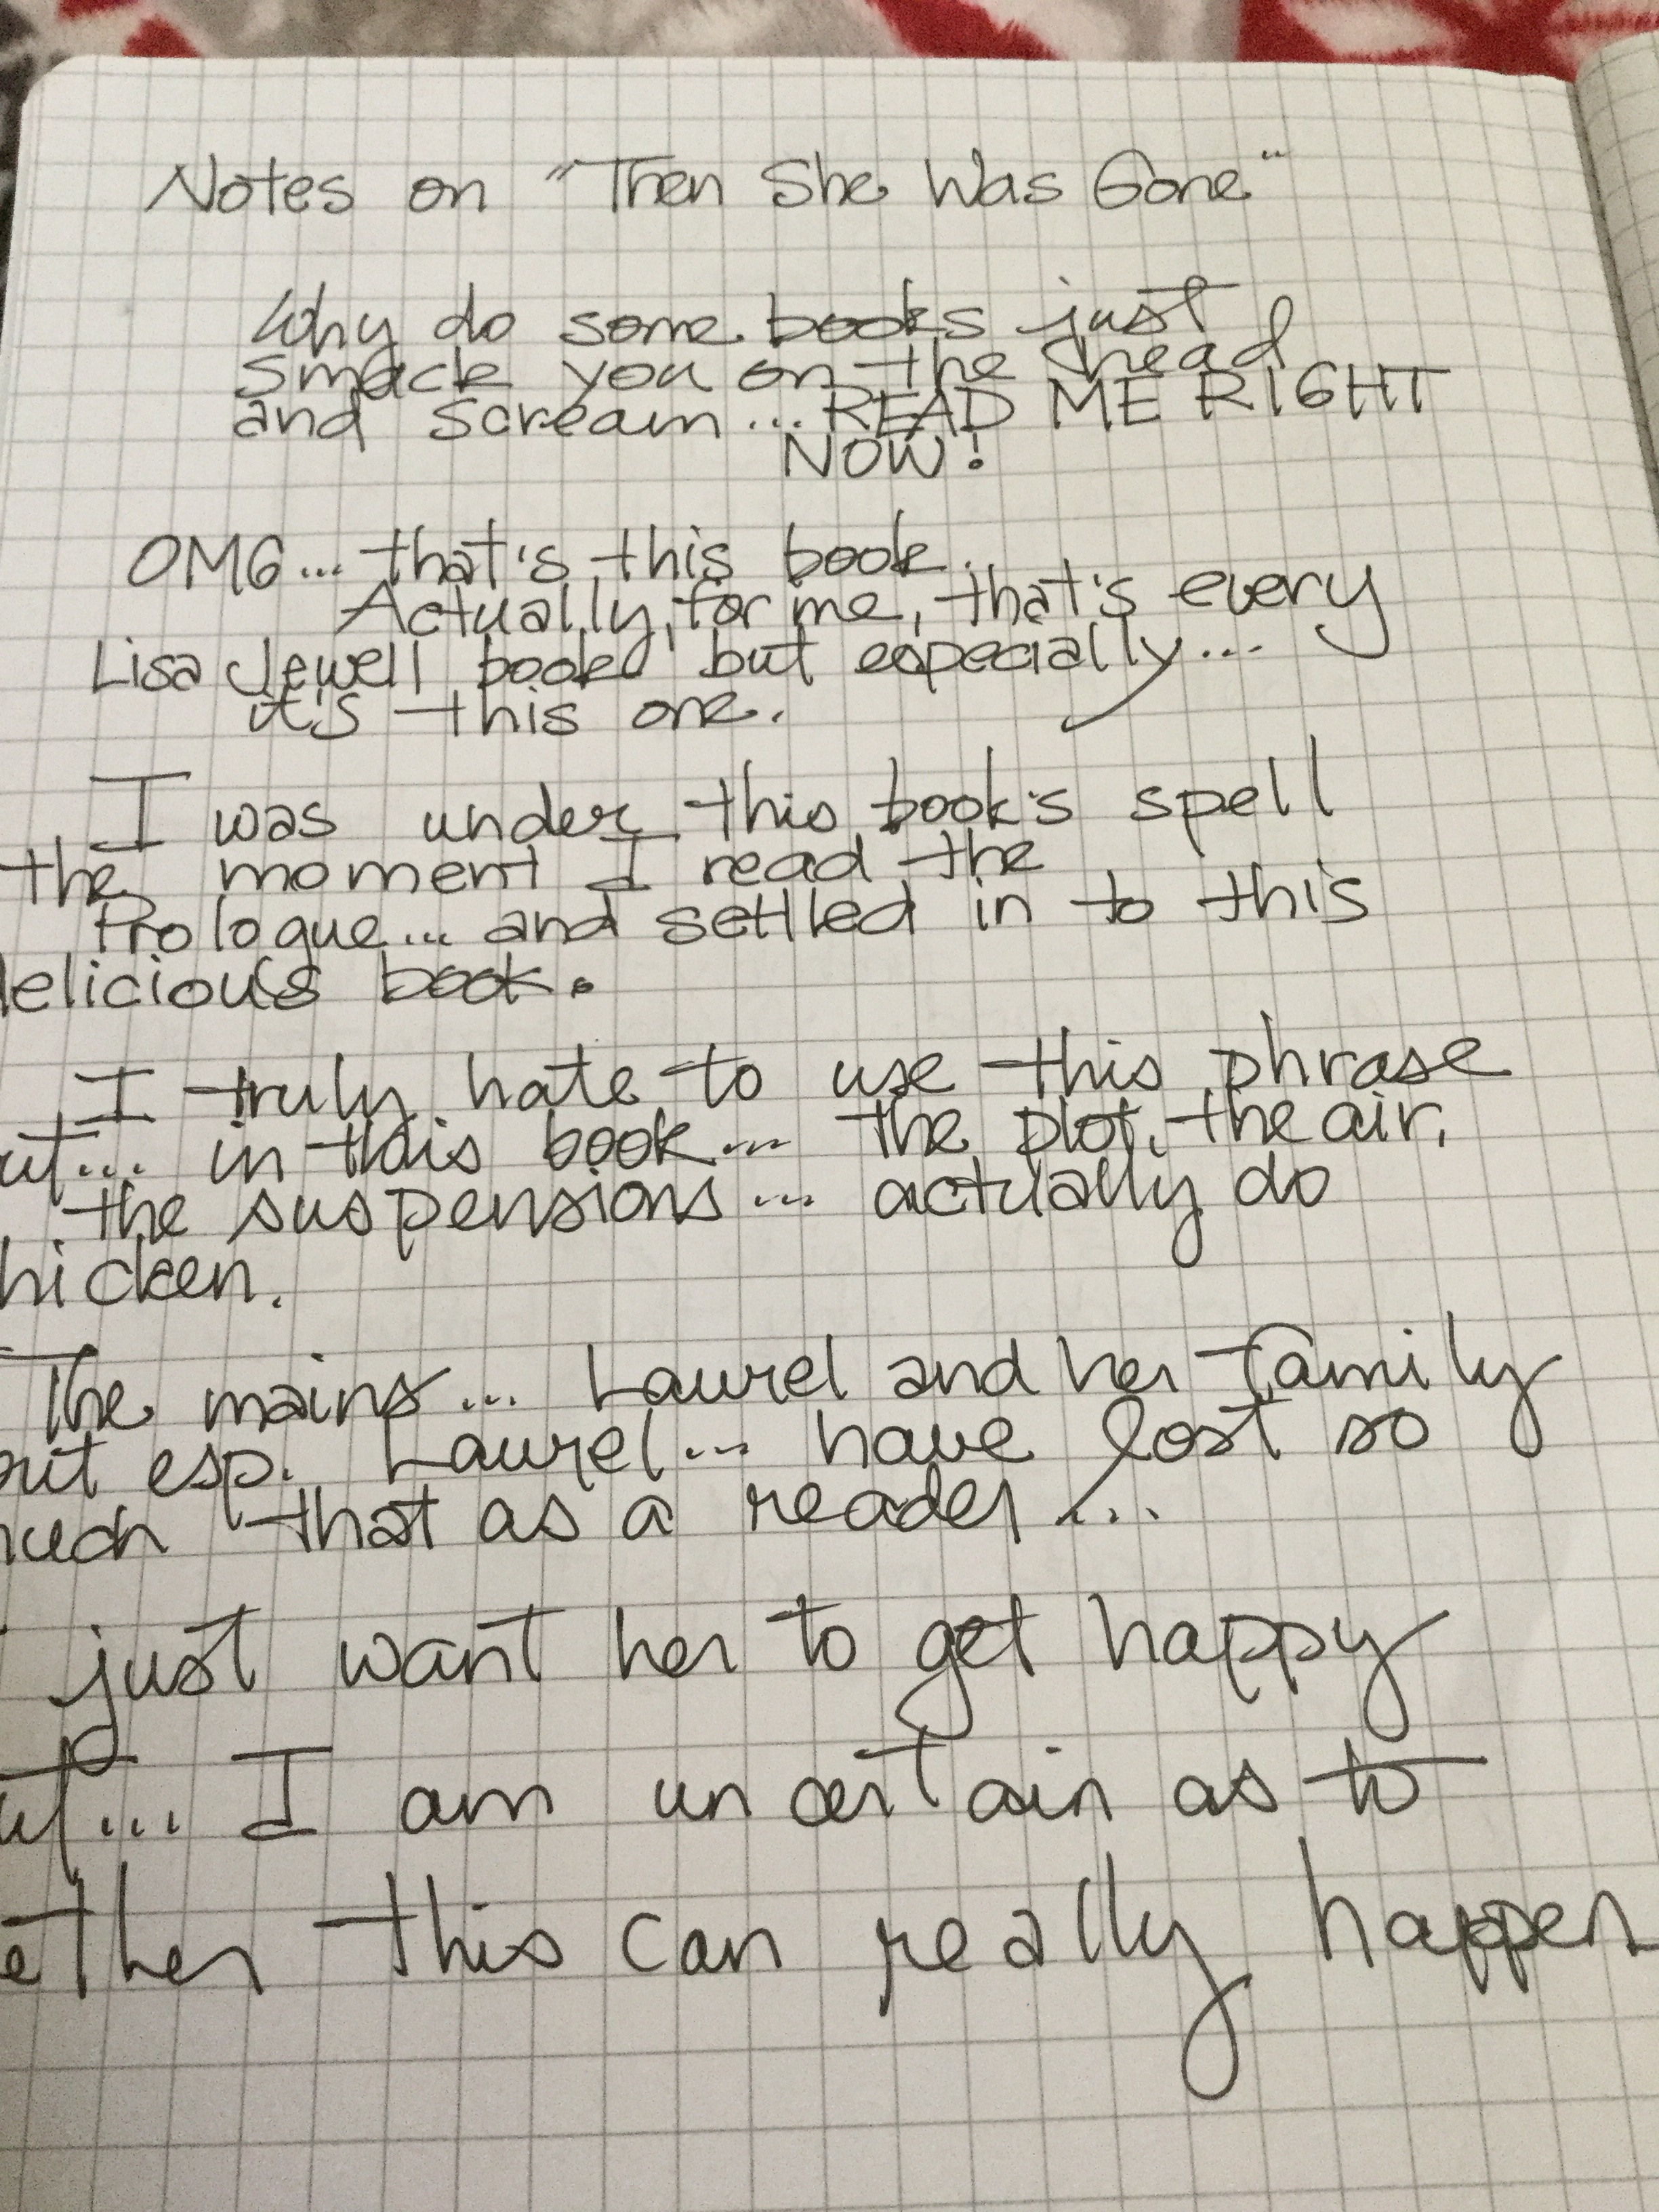 Notes on "Then She Was Gone"
Why do some books just
smack you on the head
and scream... READ ME RIGHT
NOW!
OMG... that's this book.
Actually, for me, that's every
Lisa Jewell book but especially...
it's this one.
I was under this book's spell
the moment I read the
Prologue... and settled in to this
elicious book.
I truly hate to use this phrase
ut... in this book... the plot, the air,
the suspensions... actually do
hicken.
The mains... Laurel and her family
but esp. Laurel... have lost so
much that as a reader...
I just want her to get happy
ut... I am uncertain as to
ether this can really happen